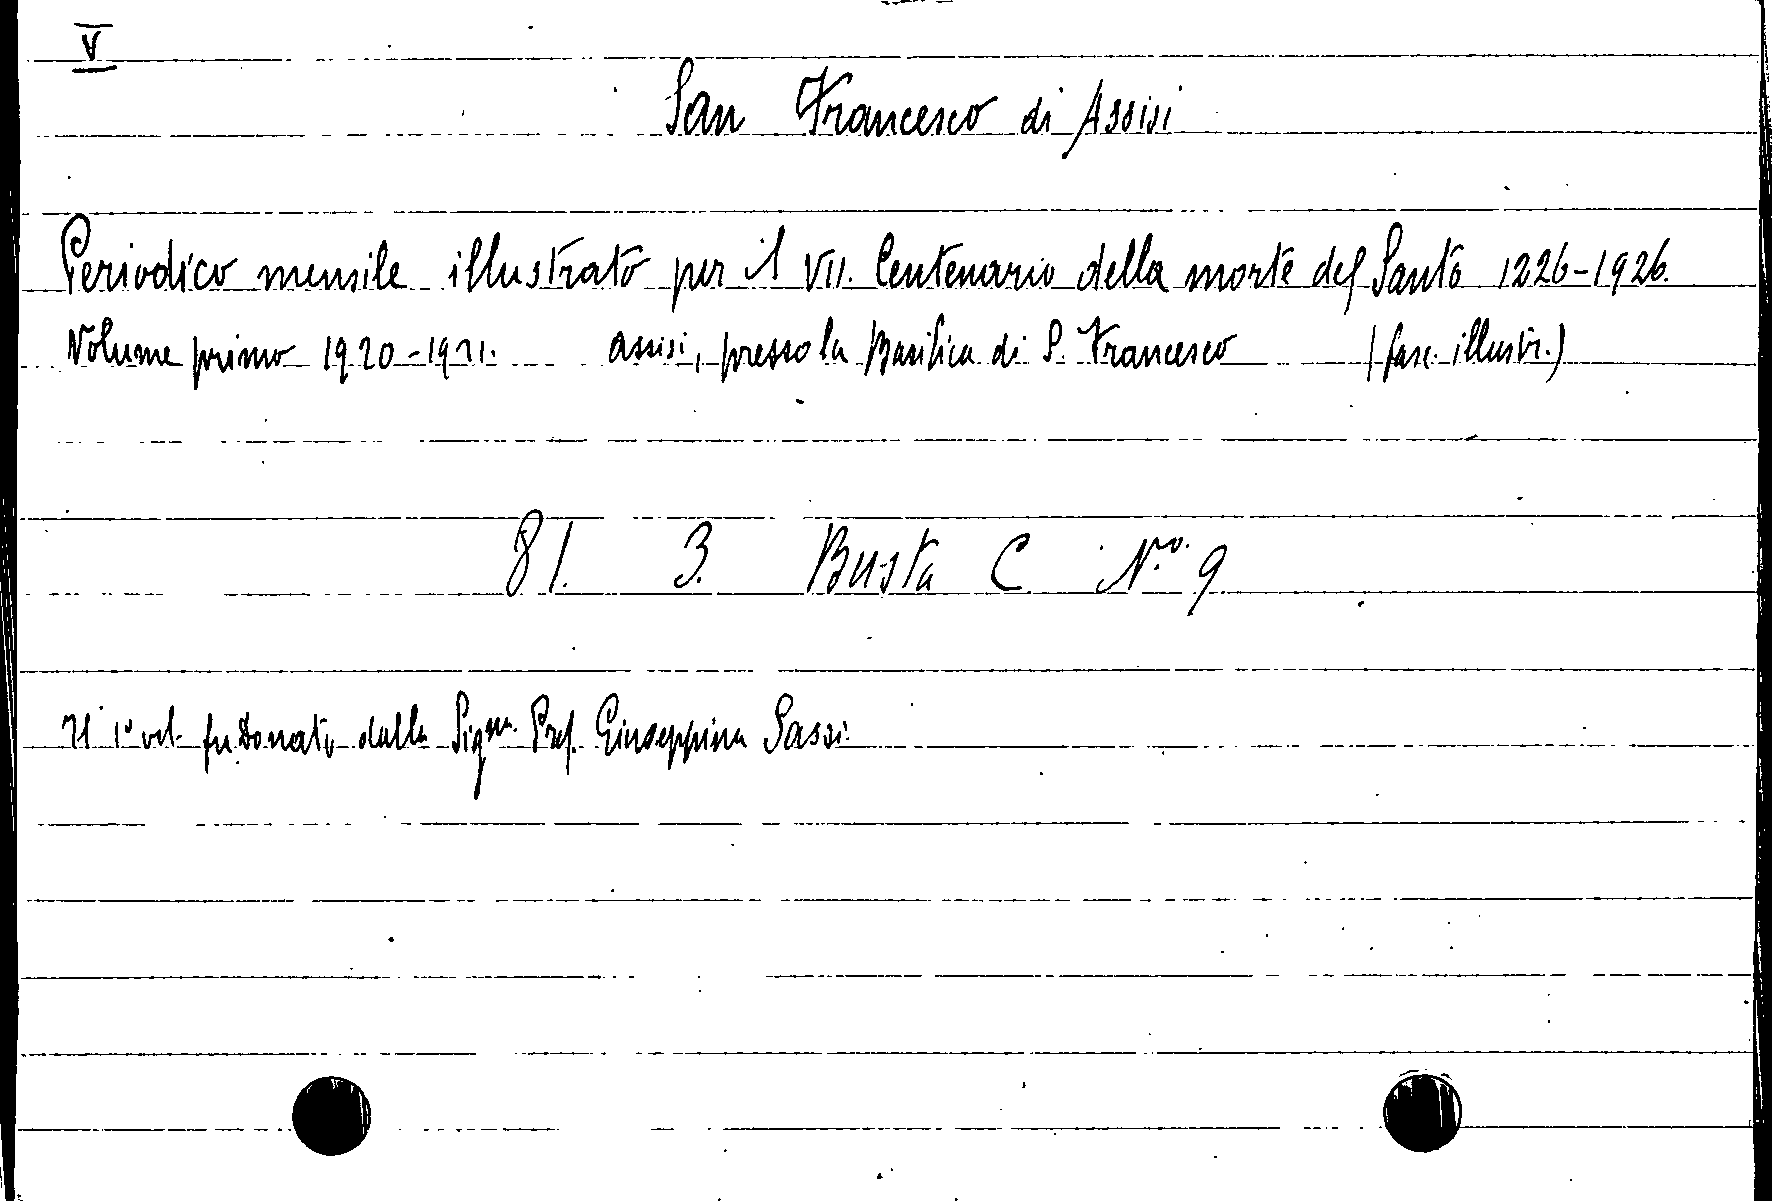 V
San Francesco di Assisi
Periodico mensile illustrato per il VII. Centenario della morte del Santo 1226-1926.
Volume primo 1920-1921. Assisi, presso la Basilica di S. Francesco (fasc. illustr.)
81. 3. Busta C N.º 9
Il 1º vol. fu donato dalla Sigra. Prof. Giuseppina Sassi.